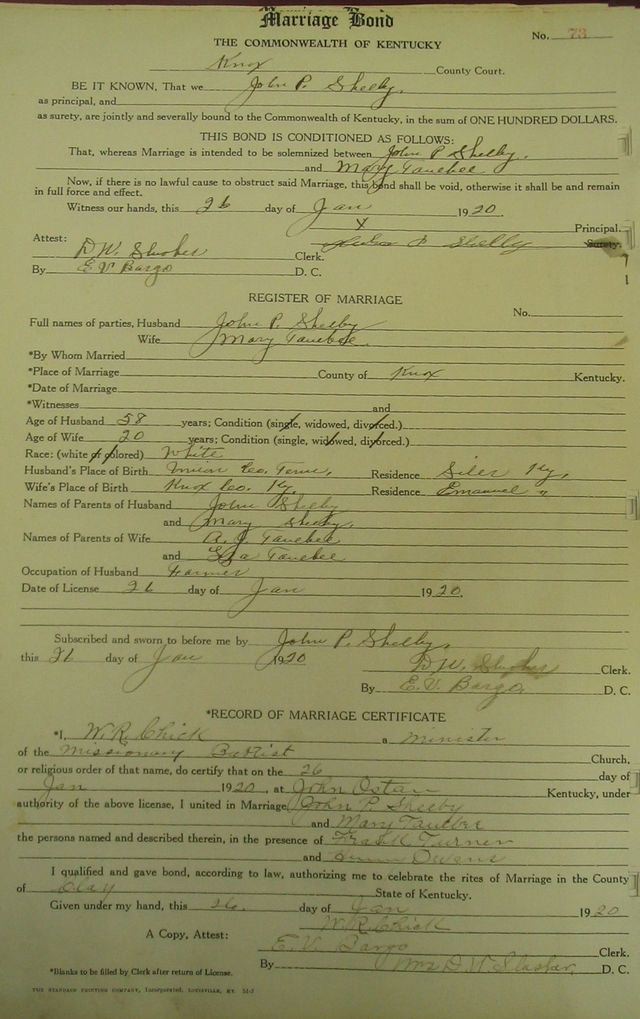 Marriage Bond
No. 73
THE COMMONWEALTH OF KENTUCKY
Knox County Court.
BE IT KNOWN, That we John P. Shelby,
as principal, and
as surety, are jointly and severally bound to the Commonwealth of Kentucky, in the sum of ONE HUNDRED DOLLARS.
THIS BOND IS CONDITIONED AS FOLLOWS:
That, whereas Marriage is intended to be solemnized between John P Shelby,
and Mary
Now, if there is no lawful cause to obstruct said Marriage, this bond shall be void, otherwise it shall be and remain
in full force and effect.
Witness our hands, this 26 day of Jan 1920
X Principal.
Attest: P Shelby Surety.
D.W. Clerk.
By E.V. Bargo D. C.
REGISTER OF MARRIAGE
No.
Full names of parties, Husband John P. Shelby
Wife Mary
*By Whom Married
*Place of Marriage County of Knox Kentucky.
*Date of Marriage
*Witnesses and
Age of Husband 58 years; Condition (single, widowed, divorced.)
Age of Wife 20 years; Condition (single, widowed, divorced.)
Race: (white or colored) White
Husband's Place of Birth Co. Tenn, Residence Siler Ky,
Wife's Place of Birth Knox Co. Ky, Residence Emanuel "
Names of Parents of Husband John Shelby
and Mary Shelby,
Names of Parents of Wife A. J.
and
Occupation of Husband Farmer
Date of License 26 day of Jan 1920.
Subscribed and sworn to before me by John P. Shelby,
this 26 day of Jan 1920 D.W. Clerk.
By E.V. Bargo, D. C.
*RECORD OF MARRIAGE CERTIFICATE
*I, W.R. Chick a minister
of the missionary Batist Church,
or religious order of that name, do certify that on the 26 day of
Jan 1920, at John Kentucky, under
authority of the above license, I united in Marriage John P Shelby
and Mary
the persons named and described therein, in the presence of Frank Turner
and Owens
I qualified and gave bond, according to law, authorizing me to celebrate the rites of Marriage in the County
of Clay State of Kentucky.
Given under my hand, this 26. day of Jan 1920
W.R. Chick
A Copy, Attest: E.V. Bargo Clerk.
By Mrs D.W. D. C.
*Blanks to be filled by Clerk after return of License.
THE STANDARD PRINTING COMPANY, Incorporated, LOUISVILLE, KY.